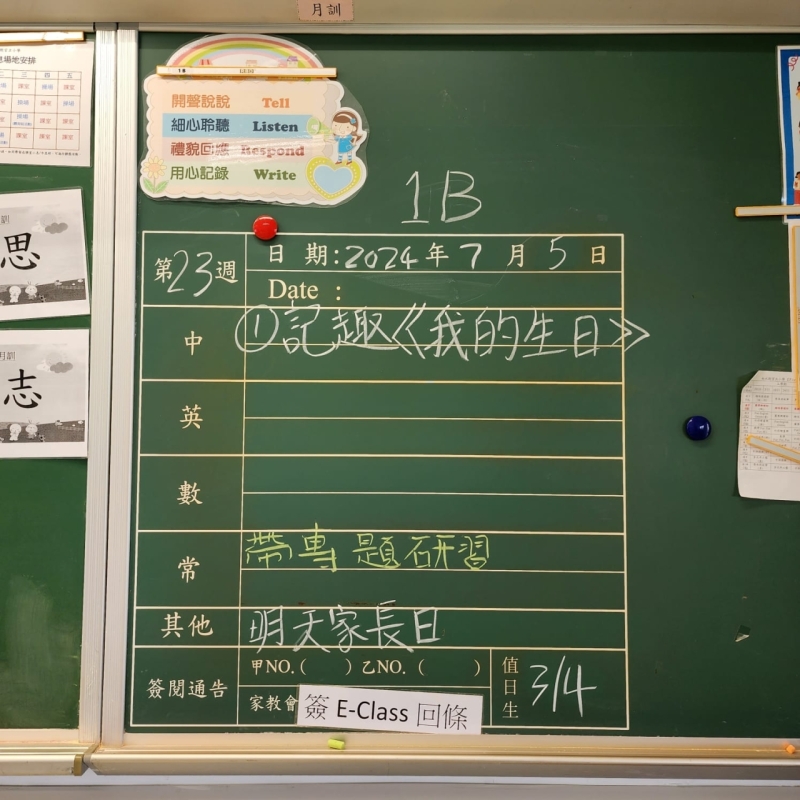 月訓
場地安排
三 四 五
開聲說說 Tell
細心聆聽 Listen
禮貌回應 Respond
用心記錄 Write
思
月訓
志
1B
第23週
日 期:2024年7月5日
Date :
中 ①記趣《我的生日》
英
數
常 帶專題研習
其他 明天家長日
簽閱通告 甲NO.( ) 乙NO.( )
家教會 簽 E-Class 回條
值日生 3/4